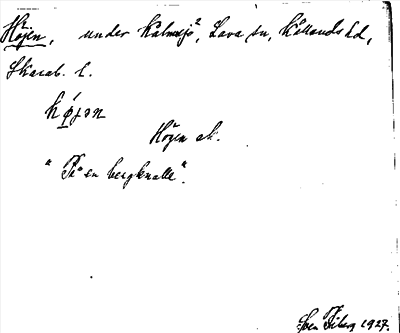 Höjen, under Kalmsjö, Lava sn, Kållands hd,
Skarab. l.
Högen ek.
"På en bergknalle".
Sven Fiberg 1927.